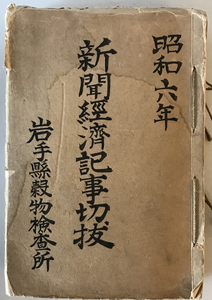 昭和六年
新聞經濟記事切抜
岩手縣穀物檢査所